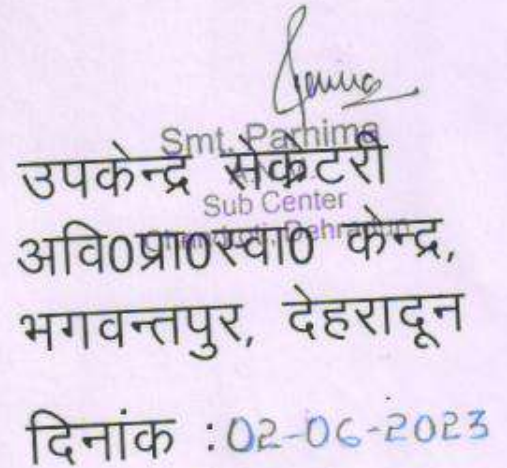 Smt. Parhima
उपकेन्द्र सेकेटरी
Sub Center
अवि0प्रा0स्वा0 केन्द्र,
भगवन्तपुर, देहरादून
दिनांक : 02-06-2023